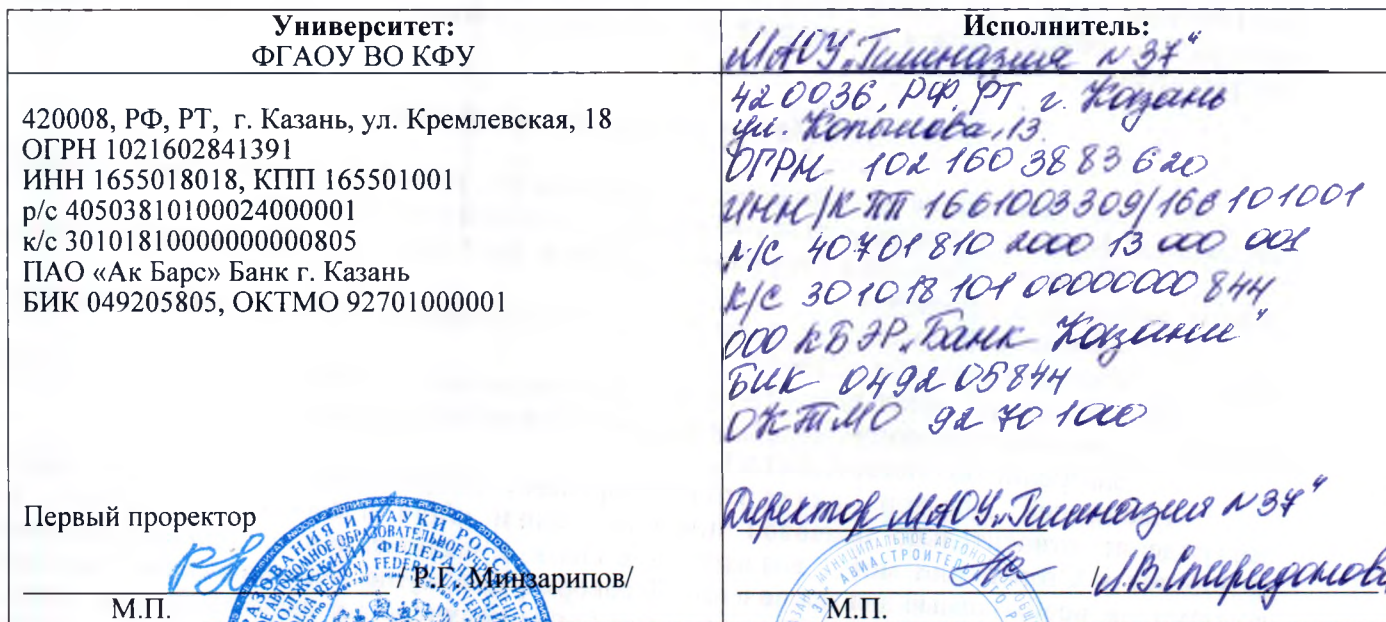 Университет:
ФГАОУ ВО КФУ
420008, РФ, РТ, г. Казань, ул. Кремлевская, 18
ОГРН 1021602841391
ИНН 1655018018, КПП 165501001
р/с 40503810100024000001
к/с 30101810000000000805
ПАО «Ак Барс» Банк г. Казань
БИК 049205805, ОКТМО 92701000001
Первый проректор
/ Р.Г. Минзарипов/
М.П.
Исполнитель:
МАОУ „Гимназия №37"
420036, РФ, РТ г. Казань
ул. Копылова, 13.
ОГРН 1021603883620
ИНН/КПП 1661003309/166101001
р/с 40701810 2000 13 000 001
к/с 301018101 00000000 844
ООО КБЭР „Банк Казани"
БИК 049205844
ОКТМО 92 70 1000
Директор МАОУ „Гимназия №37"
/Л.В. Спиридонова
М.П.